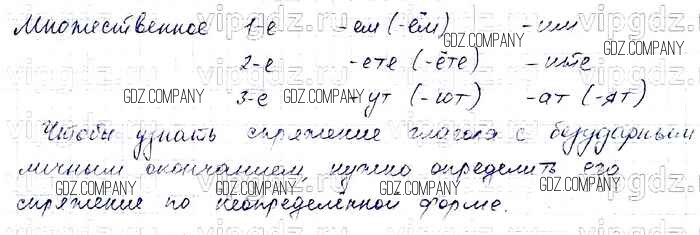 Множественное 1-е -ем (-ём) -им
2-е -ете (-ёте) -ите
3-е -ут (-ют) -ат (-ят)
Чтобы узнать спряжение глагола с безударным
личным окончанием, нужно определить его
спряжение по неопределённой форме.
GDZ.COMPANY GDZ.COMPANY
GDZ.COMPANY GDZ.COMPANY GDZ.COMPANY
GDZ.COMPANY GDZ.COMPANY GDZ.COMPANY
vipgdz.ru vipgdz.ru vipgdz.ru